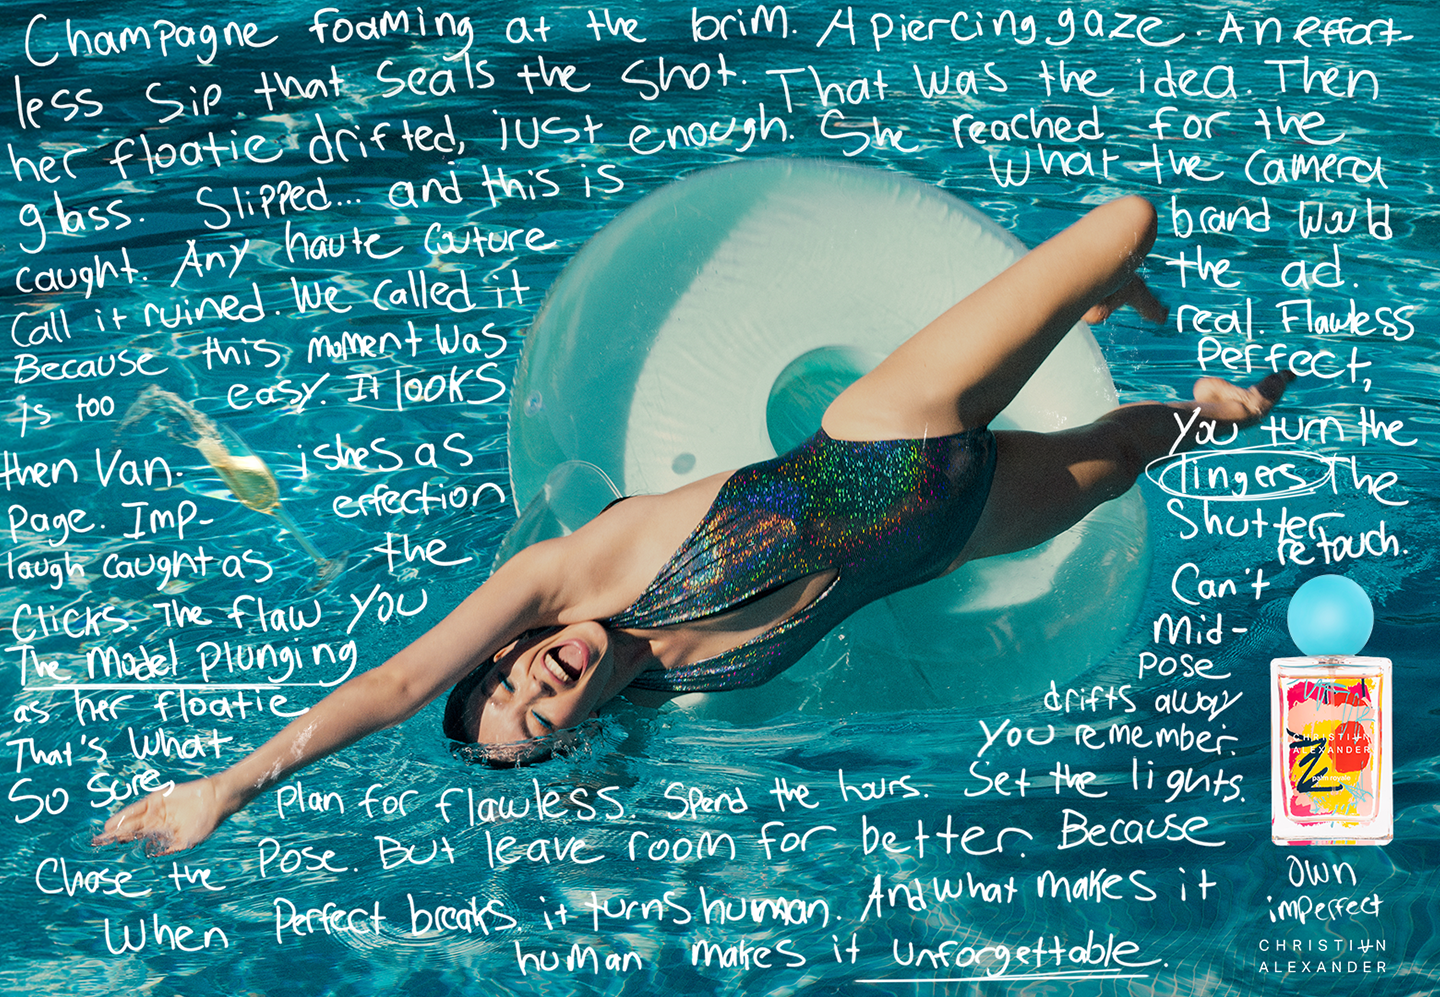 Champagne foaming at the brim. A piercing gaze. An effort-
less sip that seals the shot. That was the idea. Then
her floatie drifted, just enough. She reached for the
glass. Slipped... and this is what the camera
caught. Any haute couture brand would
call it ruined. We called it the ad.
Because this moment was real. Flawless
is too easy. It looks perfect,
then Van- ishes as you turn the
page. Imp- erfection lingers The
laugh caught as the shutter
clicks. The flaw you can't retouch.
The model plunging mid-
pose
as her floatie drifts away
That's what you remember.
So sure, plan for flawless. Spend the hours. Set the lights.
Chase the pose. But leave room for better. Because
When perfect breaks, it turns human. And what makes it
human makes it unforgettable.
CHRISTIAN
ALEXANDER
palm royale
own
imperfect
CHRISTIAN
ALEXANDER